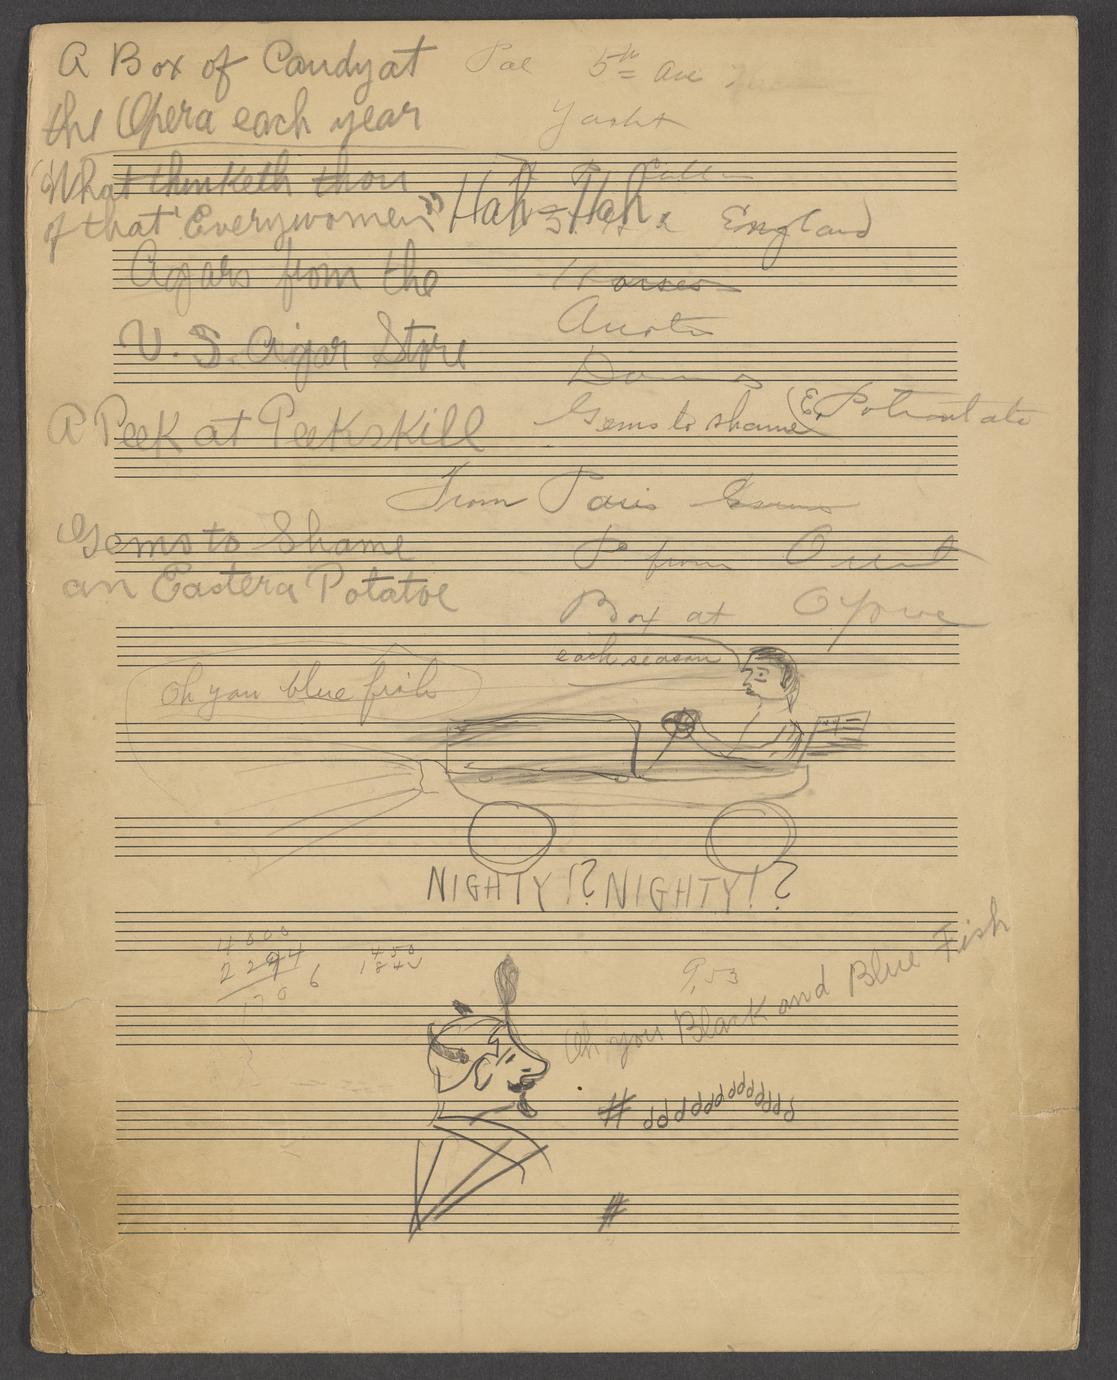 A Box of Candy at
the Opera each year
5th Ave
Yacht
"What thinketh thou
of that "Everywomen"
Hah-Hah
England
from the
Horses
U. S. Cigar Store
Autos
A Peek at Peekskill
Gems to shame E. Potentate
From Paris Gowns
Gems to Shame
an Eastern Potatoe
from Orient
Box at
each season
Oh you blue fish
NIGHTY!? NIGHTY!?
4500
1450
9,53
Oh you Black and Blue Fish
#
#